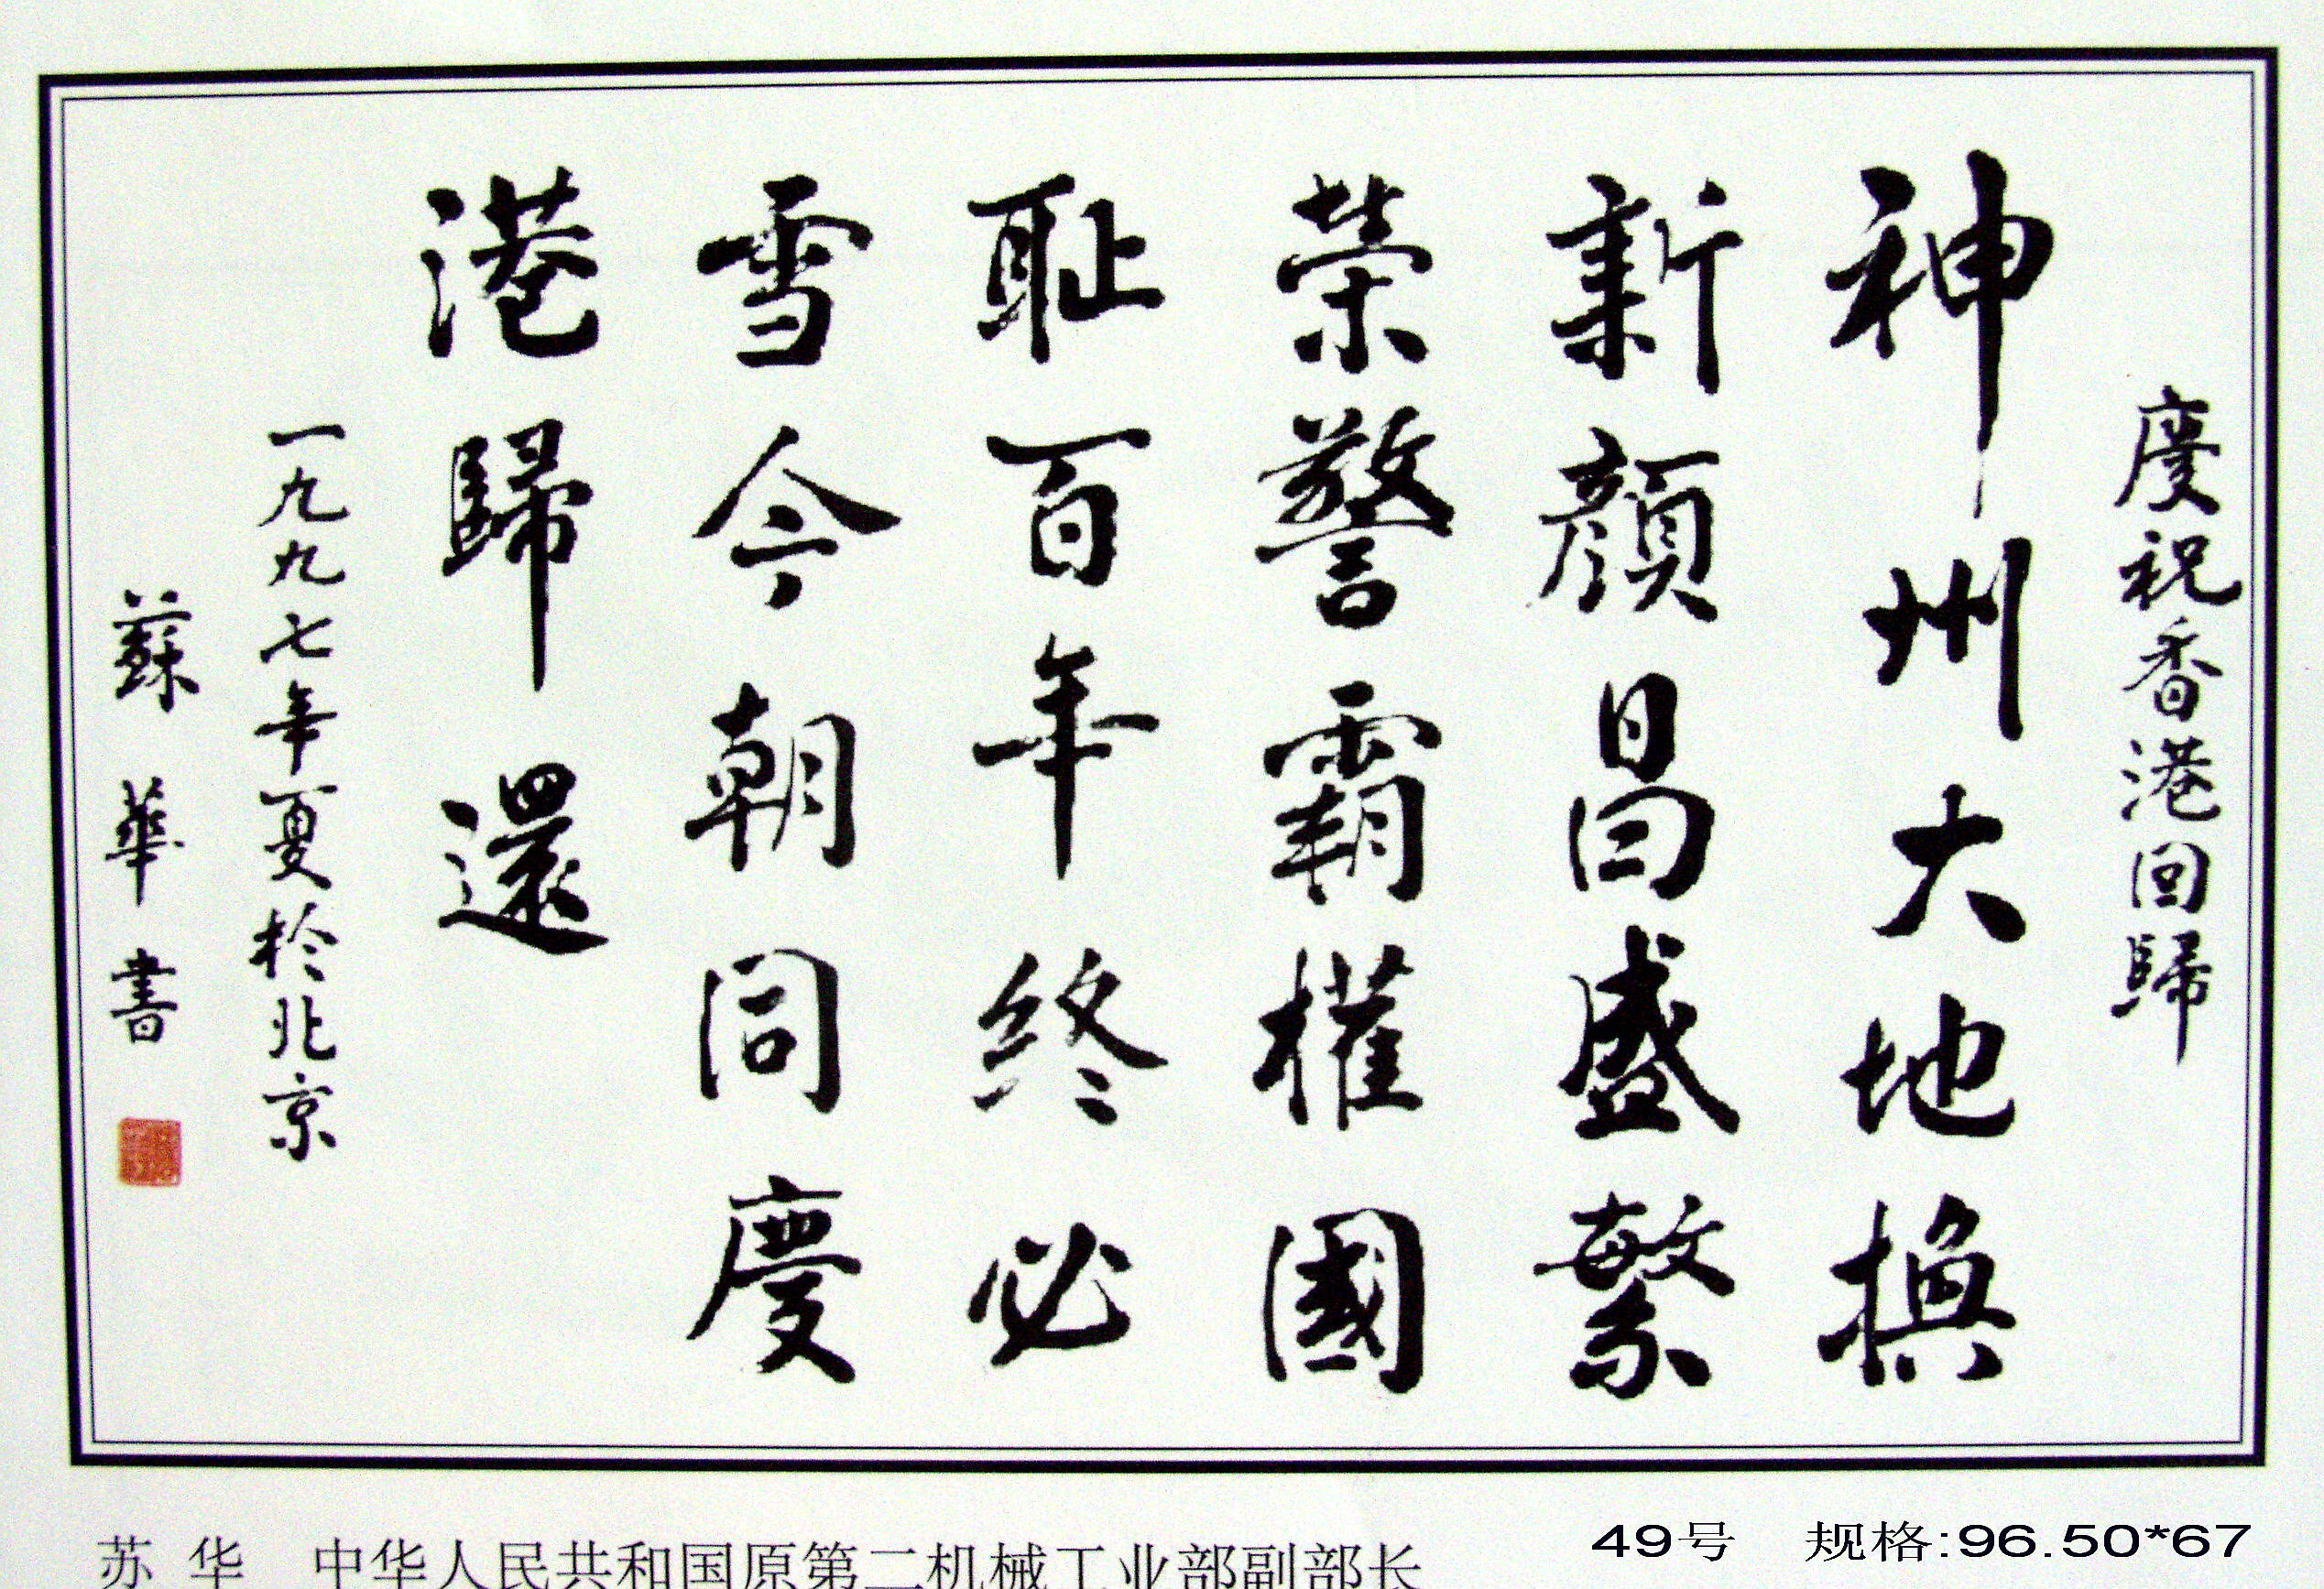 慶祝香港回歸
神州大地換
新顏昌盛繁
榮警霸權國
耻百年終必
雪今朝同慶
港歸還
一九九七年夏於北京
蘇華書
苏 华 中华人民共和国原第二机械工业部副部长
49号 规格:96.50*67